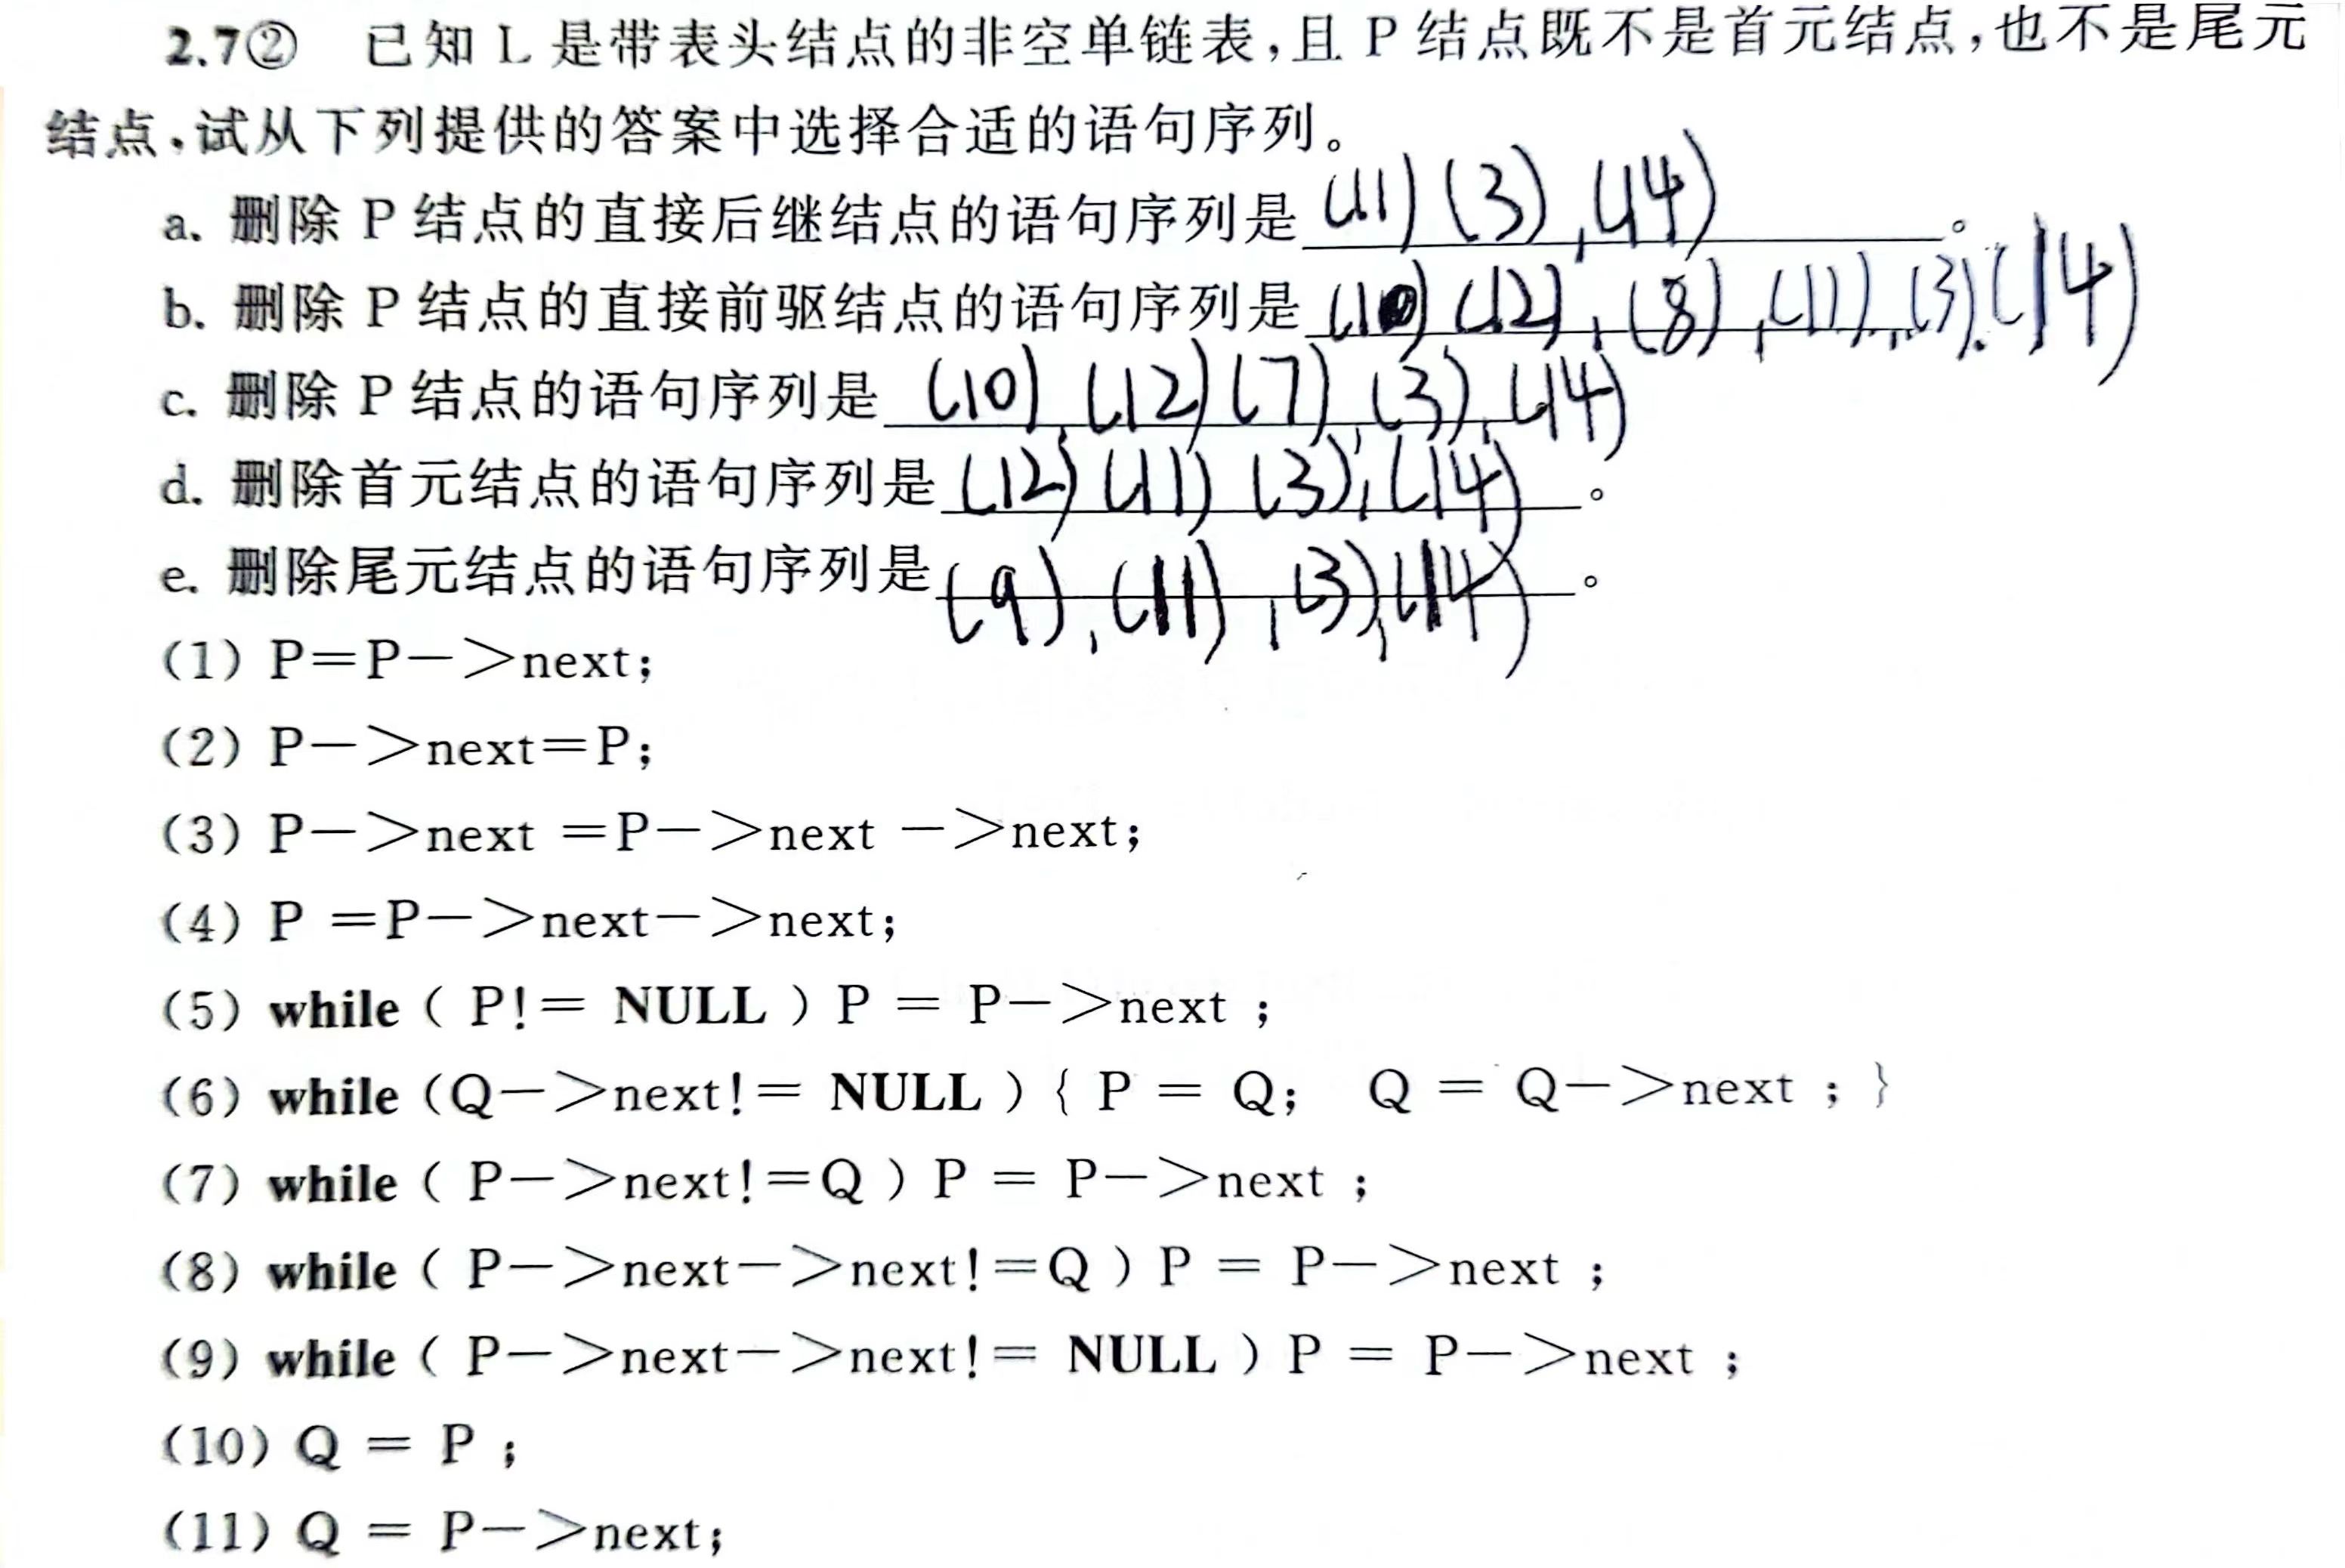 2.7② 已知 L 是带表头结点的非空单链表,且 P 结点既不是首元结点,也不是尾元
结点,试从下列提供的答案中选择合适的语句序列。
a. 删除 P 结点的直接后继结点的语句序列是 (11) (3),(14) 。
b. 删除 P 结点的直接前驱结点的语句序列是 (10) (12),(8),(11),(3),(14)
c. 删除 P 结点的语句序列是 (10),(12)(7),(3),(14)
d. 删除首元结点的语句序列是 (12) (11) (3),(14) 。
e. 删除尾元结点的语句序列是 (9),(11),(3),(14) 。
(1) P=P—>next;
(2) P—>next=P;
(3) P—>next =P—>next —>next;
(4) P =P—>next—>next;
(5) while ( P!= NULL ) P = P—>next ;
(6) while (Q—>next!= NULL ) { P = Q; Q = Q—>next ; }
(7) while ( P—>next!=Q ) P = P—>next ;
(8) while ( P—>next—>next!=Q ) P = P—>next ;
(9) while ( P—>next—>next!= NULL ) P = P—>next ;
(10) Q = P ;
(11) Q = P—>next;